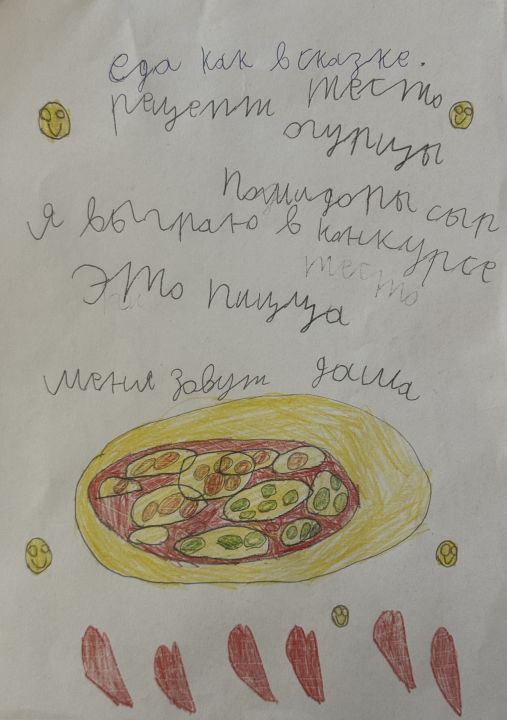 еда как в сказке.
рецепт тесто
огурцы
помидоры сыр
Я выграю в канкурсе
тесто
это пицца
меня завут даша